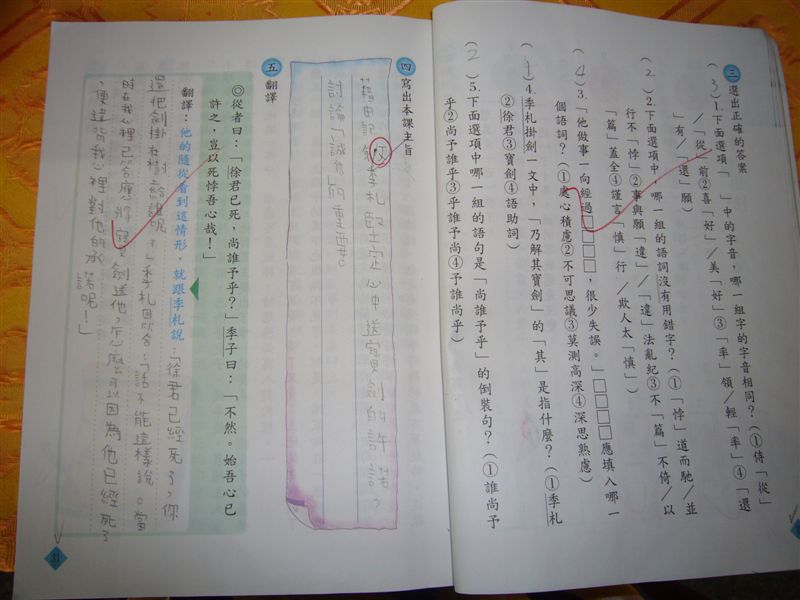 三 選出正確的答案
(3)1.下面選項「　」中的字音，哪一組字的字音相同？（①侍「從」
／「從」前②喜「好」／美「好」③「率」領／輕「率」④「還
」有／「還」願）
(2)2.下面選項中，哪一組的語詞沒有用錯字？（①「悖」道而馳／並
行不「悖」②事與願「違」／「違」法亂紀③不「篇」不倚／以
「篇」蓋全④謹言「慎」行／欺人太「慎」）
(4)3.「他做事一向經過□□□□，很少失誤。」□□□□應填入哪一
個語詞？（①處心積慮②不可思議③莫測高深④深思熟慮）
(1)4.季札掛劍一文中，「乃解其寶劍」的「其」是指什麼？（①季札
②徐君③寶劍④語助詞）
(2)5.下面選項中哪一組的語句是「尚誰予乎」的倒裝句？（①誰尚予
乎②尚予誰乎③乎誰予尚④予誰尚乎）
四 寫出本課主旨
藉由記敘季札堅定心中送寶劍的許諾，
討論「誠信」的重要。
五 翻譯
◎從者曰：「徐君已死，尚誰予乎？」季子曰：「不然。始吾心已
許之，豈以死悖吾心哉！」
翻譯：他的隨從看到這情形，就跟季札說：「徐君已經死了，你
還把劍掛在樹給誰呢？」季札回答：「話不能這樣說。當
時在我心裡已答應將寶劍送他，怎麼可以因為他已經死了
，便違背我心裡對他的承諾呢！」
31